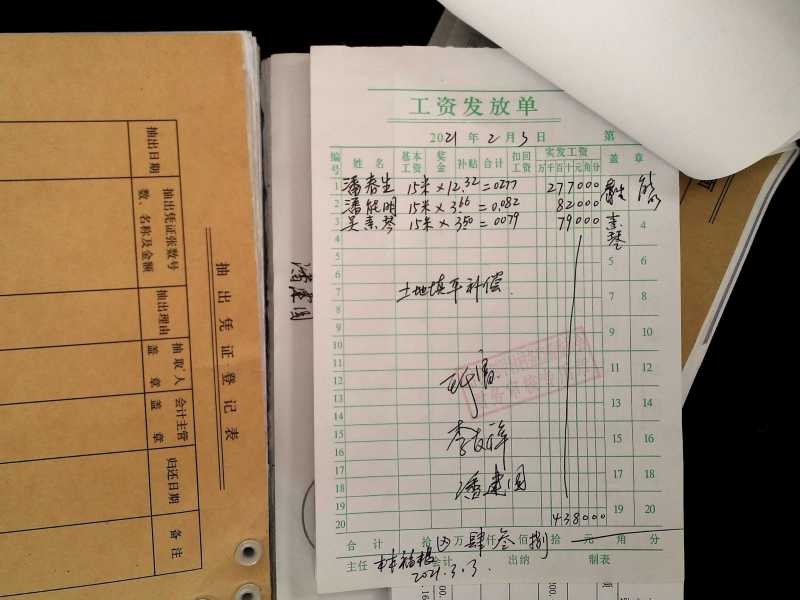 工资发放单
2021 年 2 月 3 日 第
编号 姓名 基本工资 奖金 补贴 合计 扣回工资 实发工资 盖章
万 千 百 十 元 角 分
1 潘春生 15米×12.32=0277 277000
2 潘能明 15米×3.66=0.082 82000
3 吴素琴 15米×350=0079 79000 素琴 4
4
5 5 6
6
7 土地填平补偿 7 8
8
9 9 10
10
11 11 12
12
13 13 14
14
15 15 16
16
17 潘建国 17 18
18
19 19 20
20 438000
合计 拾 万 肆 仟 叁 佰 捌 拾 元 角 分
主任 会计 出纳 制表
2021.3.3
潘建国
抽出凭证登记表
抽出日期
抽出凭证张数号数、名称及金额
抽出理由
抽取人盖章
会计主管盖章
归还日期
备注